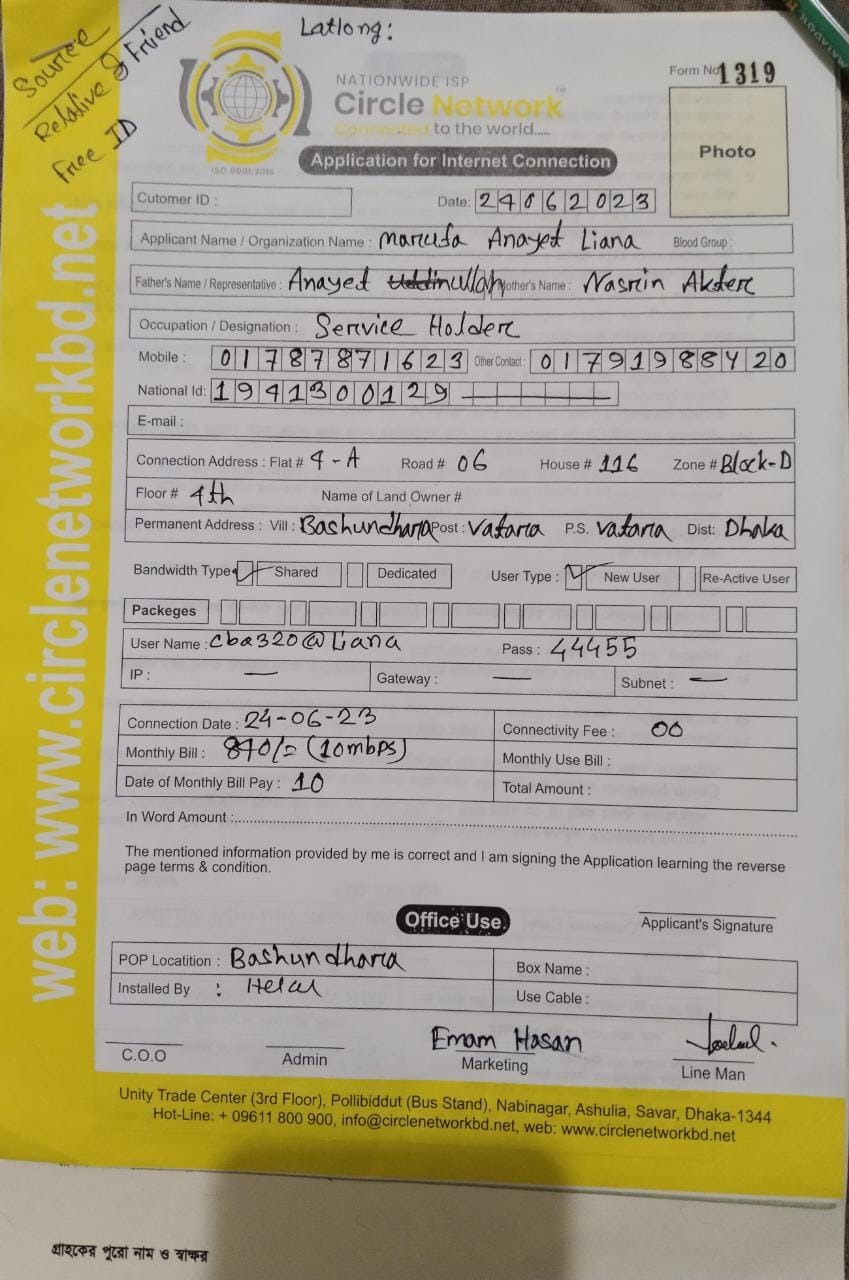 Latlong:
Source
Relative & Friend
Free ID
NATIONWIDE ISP
Circle Network
Connected to the world.....
ISO 9001:2015
Form No 1319
Photo
Application for Internet Connection
Cutomer ID :
Date: 24062023
Applicant Name / Organization Name : Marufa Anayet Liana Blood Group :
Father's Name / Representative : Anayet ullah Mother's Name : Nasrin Akter
Occupation / Designation : Service Holder
Mobile : 01787871623 Other Contact : 01791988420
National Id: 1941300129
E-mail :
Connection Address : Flat # 4-A Road # 06 House # 116 Zone # Block-D
Floor # 4th Name of Land Owner #
Permanent Address : Vill : Bashundhara Post : Vatara P.S. Vatara Dist: Dhaka
Bandwidth Type Shared Dedicated User Type : New User Re-Active User
Packeges
User Name : cba320@Liana Pass : 44455
IP : — Gateway : — Subnet : —
Connection Date : 24-06-23 Connectivity Fee : 00
Monthly Bill : 840/= (10mbps) Monthly Use Bill :
Date of Monthly Bill Pay : 10 Total Amount :
In Word Amount :
The mentioned information provided by me is correct and I am signing the Application learning the reverse
page terms & condition.
Office Use
Applicant's Signature
POP Locatition : Bashundhara Box Name :
Installed By : Helal Use Cable :
Emam Hasan
C.O.O Admin Marketing Line Man
Unity Trade Center (3rd Floor), Pollibiddut (Bus Stand), Nabinagar, Ashulia, Savar, Dhaka-1344
Hot-Line: + 09611 800 900, info@circlenetworkbd.net, web: www.circlenetworkbd.net
web: www.circlenetworkbd.net
গ্রাহকের পুরো নাম ও স্বাক্ষর